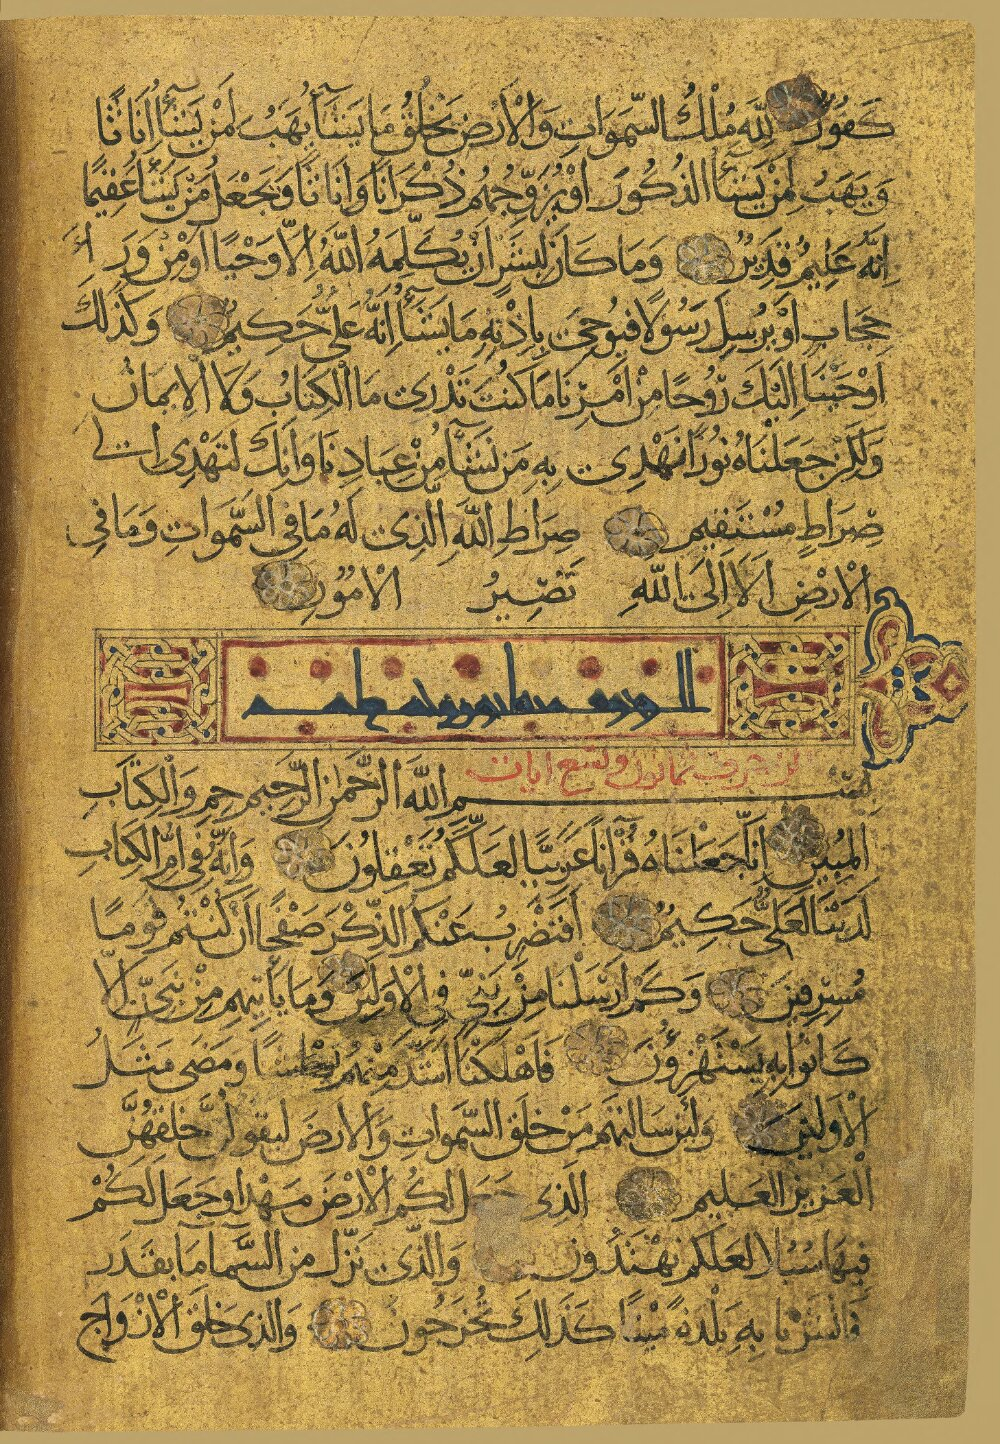 كَفُورٌ لِلَّهِ مُلْكُ السَّمَوَاتِ وَالْأَرْضِ يَخْلُقُ مَا يَشَآءُ يَهَبُ لِمَنْ يَشَآءُ إِنَاثًا
وَيَهَبُ لِمَنْ يَشَآءُ الذُّكُورَ أَوْ يُزَوِّجُهُمْ ذُكْرَانًا وَإِنَاثًا وَيَجْعَلُ مَنْ يَشَآءُ عَقِيمًا
إِنَّهُ عَلِيمٌ قَدِيرٌ وَمَا كَانَ لِبَشَرٍ أَنْ يُكَلِّمَهُ اللَّهُ إِلَّا وَحْيًا أَوْ مِنْ وَرَاءِ
حِجَابٍ أَوْ يُرْسِلَ رَسُولًا فَيُوحِيَ بِإِذْنِهِ مَا يَشَآءُ إِنَّهُ عَلِيٌّ حَكِيمٌ وَكَذَلِكَ
أَوْحَيْنَا إِلَيْكَ رُوحًا مِنْ أَمْرِنَا مَا كُنْتَ تَدْرِي مَا الْكِتَابُ وَلَا الْإِيمَانُ
وَلَكِنْ جَعَلْنَاهُ نُورًا نَهْدِي بِهِ مَنْ نَشَآءُ مِنْ عِبَادِنَا وَإِنَّكَ لَتَهْدِي إِلَى
صِرَاطٍ مُسْتَقِيمٍ صِرَاطِ اللَّهِ الَّذِي لَهُ مَا فِي السَّمَوَاتِ وَمَا فِي
الْأَرْضِ أَلَا إِلَى اللَّهِ تَصِيرُ الْأُمُورُ
الزخرف ثمانون وتسع ايات
بِسْمِ اللَّهِ الرَّحْمَنِ الرَّحِيمِ حم وَالْكِتَابِ
الْمُبِينِ إِنَّا جَعَلْنَاهُ قُرْآنًا عَرَبِيًّا لَعَلَّكُمْ تَعْقِلُونَ وَإِنَّهُ فِي أُمِّ الْكِتَابِ
لَدَيْنَا لَعَلِيٌّ حَكِيمٌ أَفَنَضْرِبُ عَنْكُمُ الذِّكْرَ صَفْحًا أَنْ كُنْتُمْ قَوْمًا
مُسْرِفِينَ وَكَمْ أَرْسَلْنَا مِنْ نَبِيٍّ فِي الْأَوَّلِينَ وَمَا يَأْتِيهِمْ مِنْ نَبِيٍّ إِلَّا
كَانُوا بِهِ يَسْتَهْزِؤُونَ فَأَهْلَكْنَا أَشَدَّ مِنْهُمْ بَطْشًا وَمَضَى مَثَلُ
الْأَوَّلِينَ وَلَئِنْ سَأَلْتَهُمْ مَنْ خَلَقَ السَّمَوَاتِ وَالْأَرْضَ لَيَقُولُنَّ خَلَقَهُنَّ
الْعَزِيزُ الْعَلِيمُ الَّذِي جَعَلَ لَكُمُ الْأَرْضَ مَهْدًا وَجَعَلَ لَكُمْ
فِيهَا سُبُلًا لَعَلَّكُمْ تَهْتَدُونَ وَالَّذِي نَزَّلَ مِنَ السَّمَآءِ مَآءً بِقَدَرٍ
فَأَنْشَرْنَا بِهِ بَلْدَةً مَيْتًا كَذَلِكَ تُخْرَجُونَ وَالَّذِي خَلَقَ الْأَزْوَاجَ